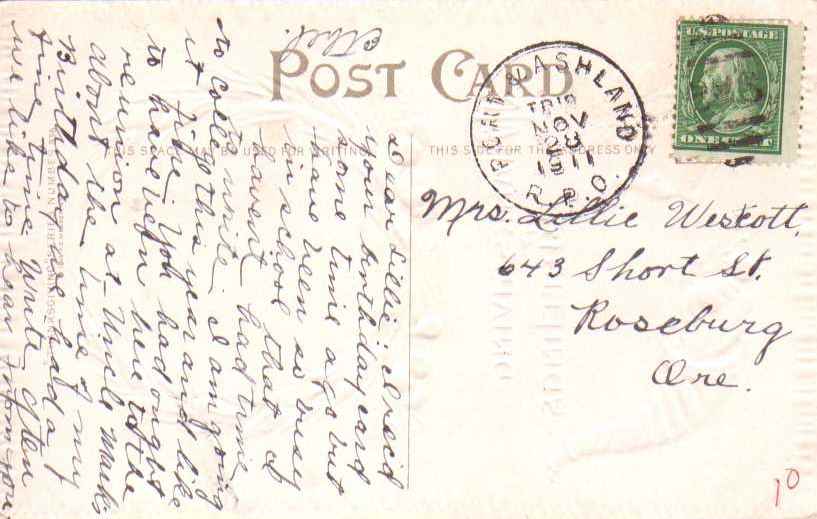 POST CARD
THIS SPACE MAY BE USED FOR WRITING
THIS SIDE FOR THE ADDRESS ONLY
U.S. POSTAGE
ONE CENT
PORTL'D N ASHLAND
NOV
1911
R.P.O.
Mrs. Lillie Westcott,
643 Short St.
Roseburg
Ore.
10
Dear Lillie:- I rec'd
your birthday card
some time ago but
have been so busy
in school that I
havent had time
to write. I am going
to college this year and like
it fine. You had ought
to have been here to the
reunion at Uncle Mark's
about the time of my
Birthday. We had a
fine time. Write often
we like to hear from you
Ethel.